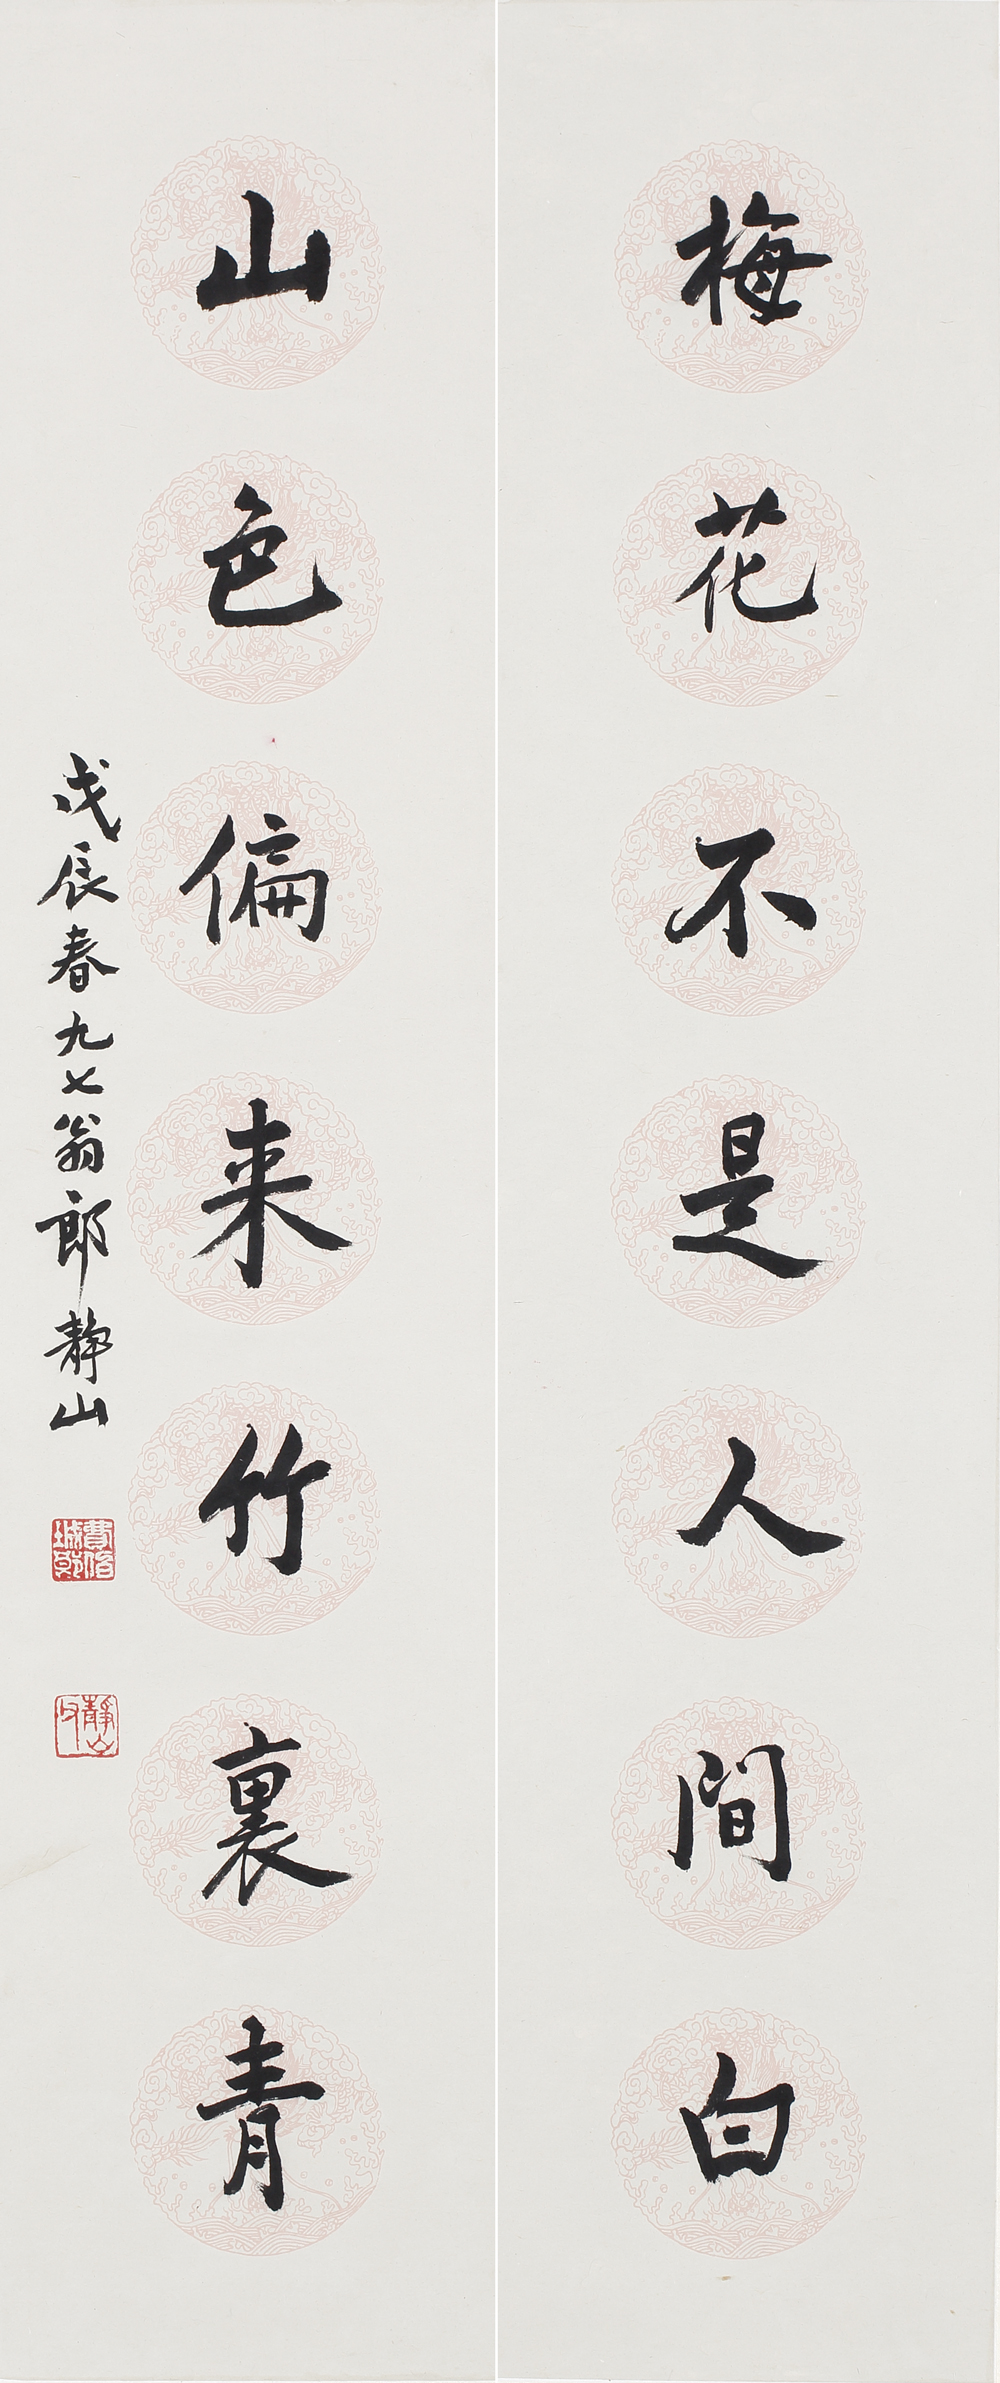 梅花不是人間白
山色偏来竹裏青
戊辰春九七翁郎静山
靜山